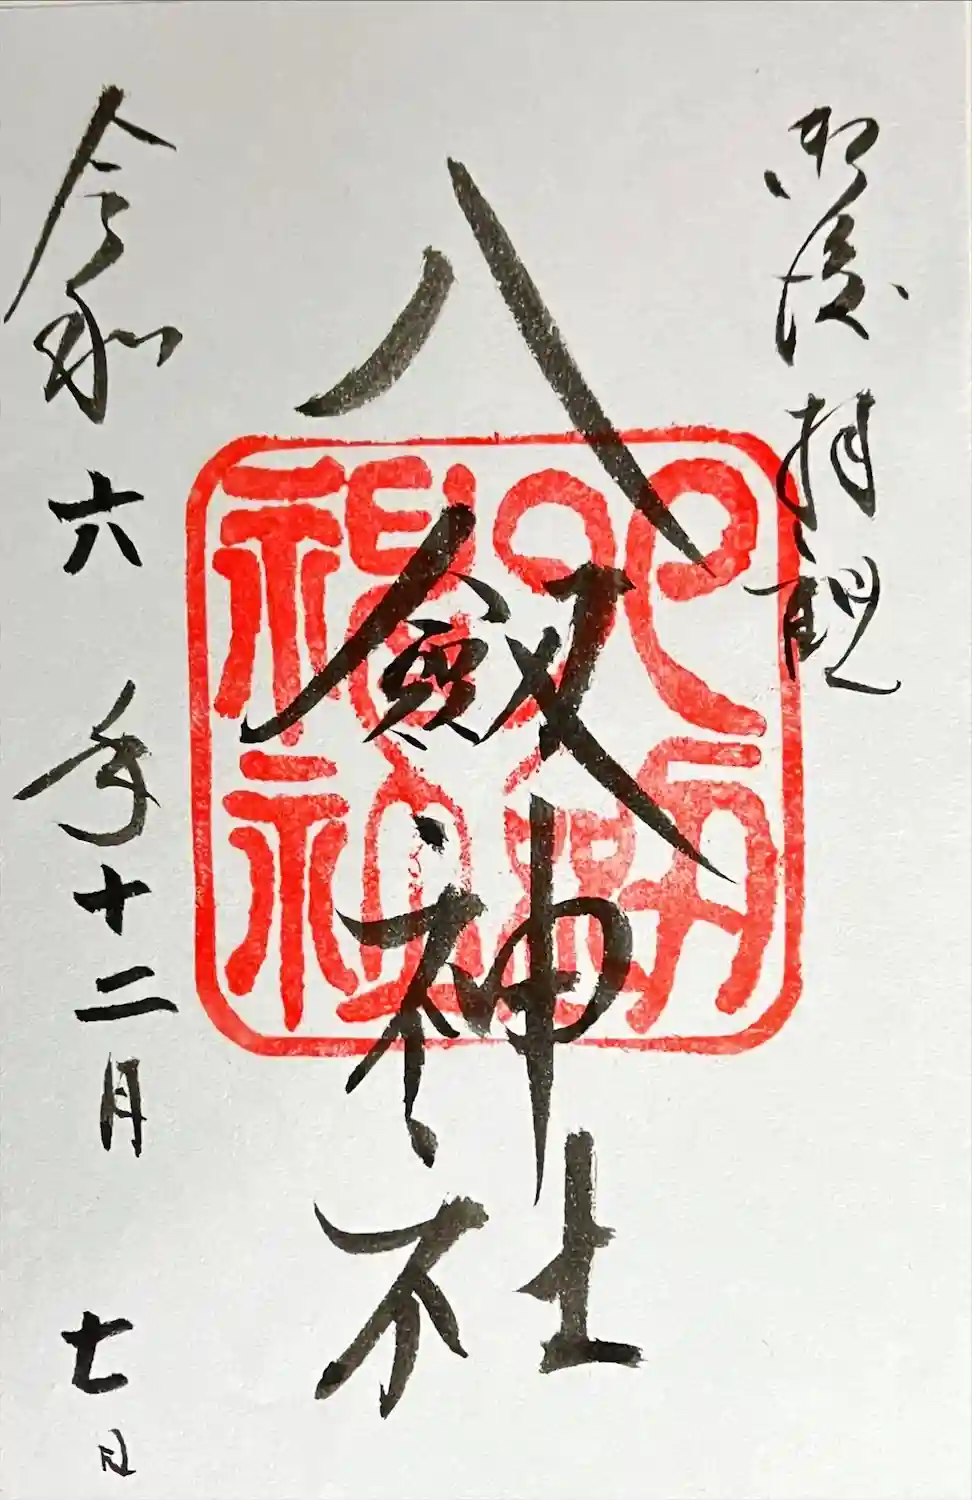 御渡拝観
八剱神社
八剱神社
令和六年十二月七日